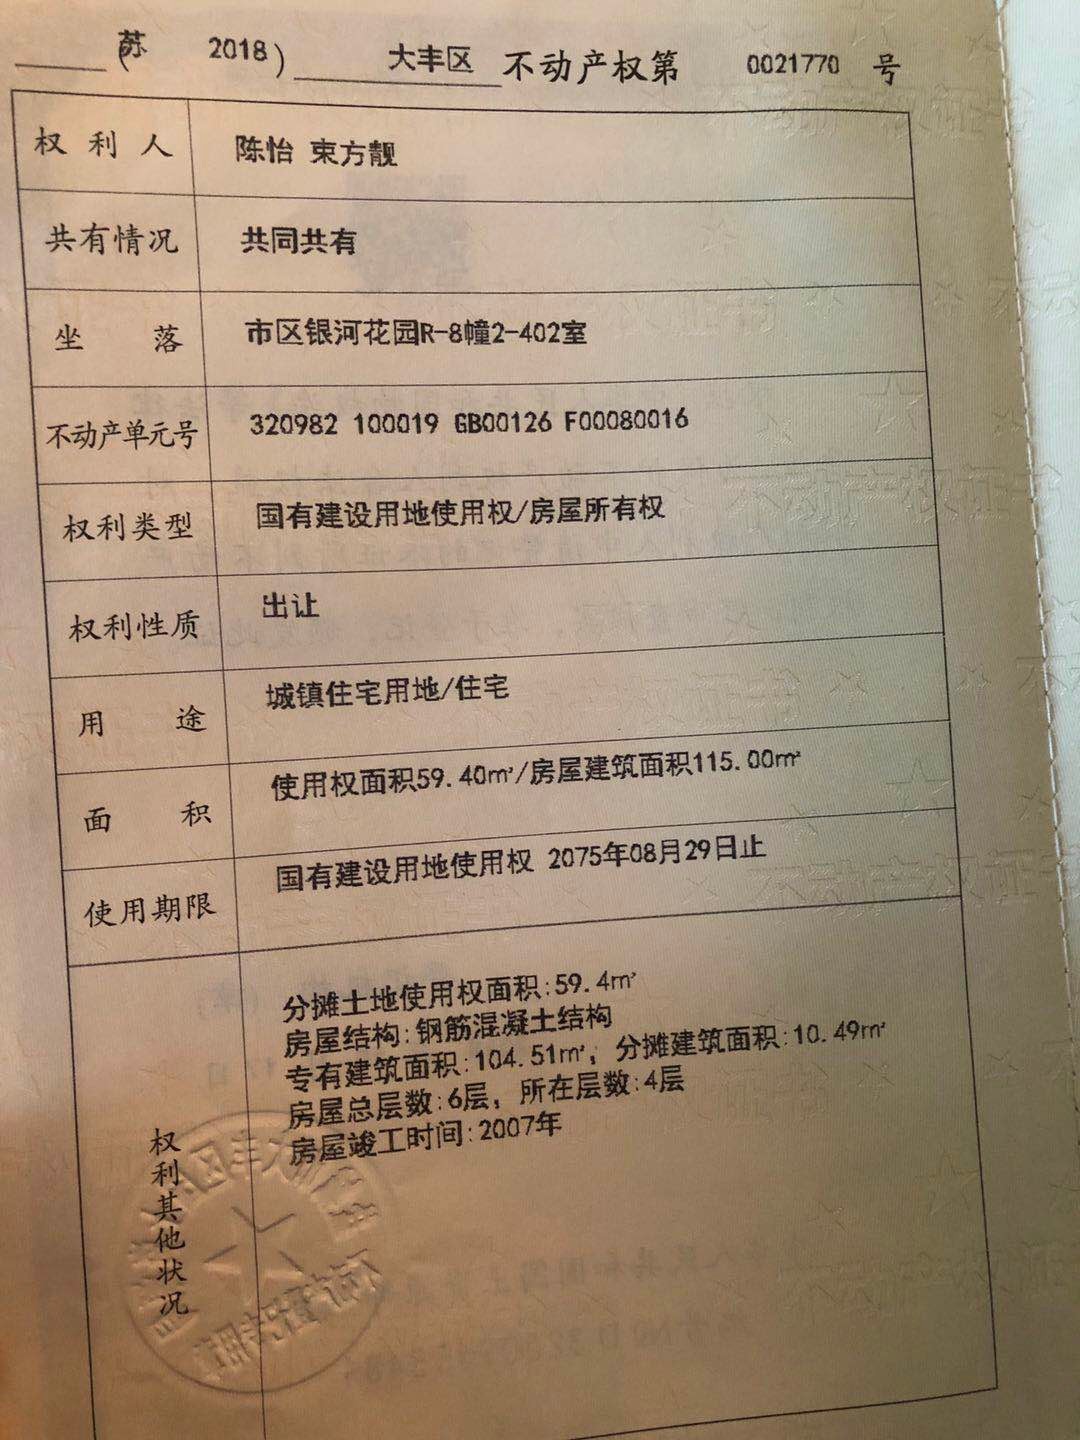 苏(2018)大丰区不动产权第0021770号
权利人 陈怡 束方靓
共有情况 共同共有
坐落 市区银河花园R-8幢2-402室
不动产单元号 320982 100019 GB00126 F00080016
权利类型 国有建设用地使用权/房屋所有权
权利性质 出让
用途 城镇住宅用地/住宅
面积 使用权面积59.40㎡/房屋建筑面积115.00㎡
使用期限 国有建设用地使用权 2075年08月29日止
权利其他状况
分摊土地使用权面积:59.4㎡
房屋结构:钢筋混凝土结构
专有建筑面积:104.51㎡, 分摊建筑面积:10.49㎡
房屋总层数:6层, 所在层数:4层
房屋竣工时间:2007年